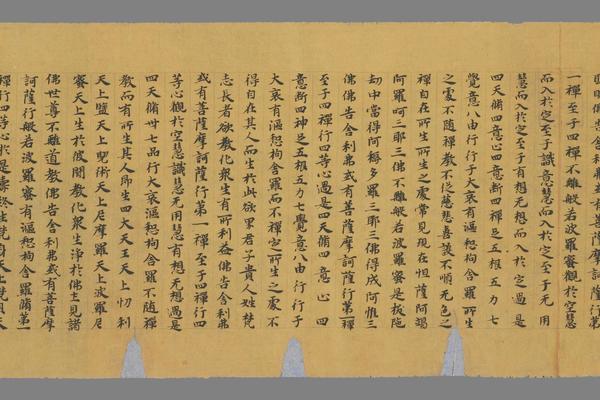 佛告舍利弗或有菩薩摩訶薩行第
一禪至于四禪不離般若波羅蜜觀於空慧
而入於定至于識意慧而入於定至于无用
慧而入於定至于有想无想而入於定過是
四天備四意心四意斷四禪足五根五力七
覺意八由行行于大哀有漚惒拘舍羅所生
之處不隨禪教不從慈悲喜護不順无色之
禪自在所生所生之處常見現在怛薩阿竭
阿羅呵三耶三佛不離般若波羅蜜是颰陁
劫中當得阿耨多羅三耶三佛得成阿惟三
佛佛告舍利弗或有菩薩摩訶薩行第一禪
至于四禪行四等心過是四天備四意止四
意斷四神足五根五力七覺意八由行行于
大哀有漚惒拘舍羅而不禪定所生之處不
得自在其人而生於此欲界君子貴姓梵
志長者欲教化衆生有所利益佛告舍利弗
或有菩薩摩訶薩行第一禪至于四禪行四
等心觀於空慧識慧无用慧有想无想過是
四天備卅七品行大哀漚惒拘舍羅不隨禪
教而有所生其人即生四大天王天上忉利
天上鹽天上兜術天上尼摩羅天上波羅尼
蜜天上生於彼間教化衆生淨於佛土見諸
佛世尊不離道教佛告舍利弗或有菩薩摩
訶薩行般若波羅蜜有漚惒拘舍羅備第一
禪行四等心於是壽終生梵天上